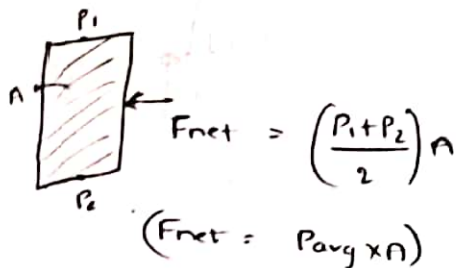 P1
A
Fnet = (P1+P2/2) A
P2
(Fnet = Pavg x A)